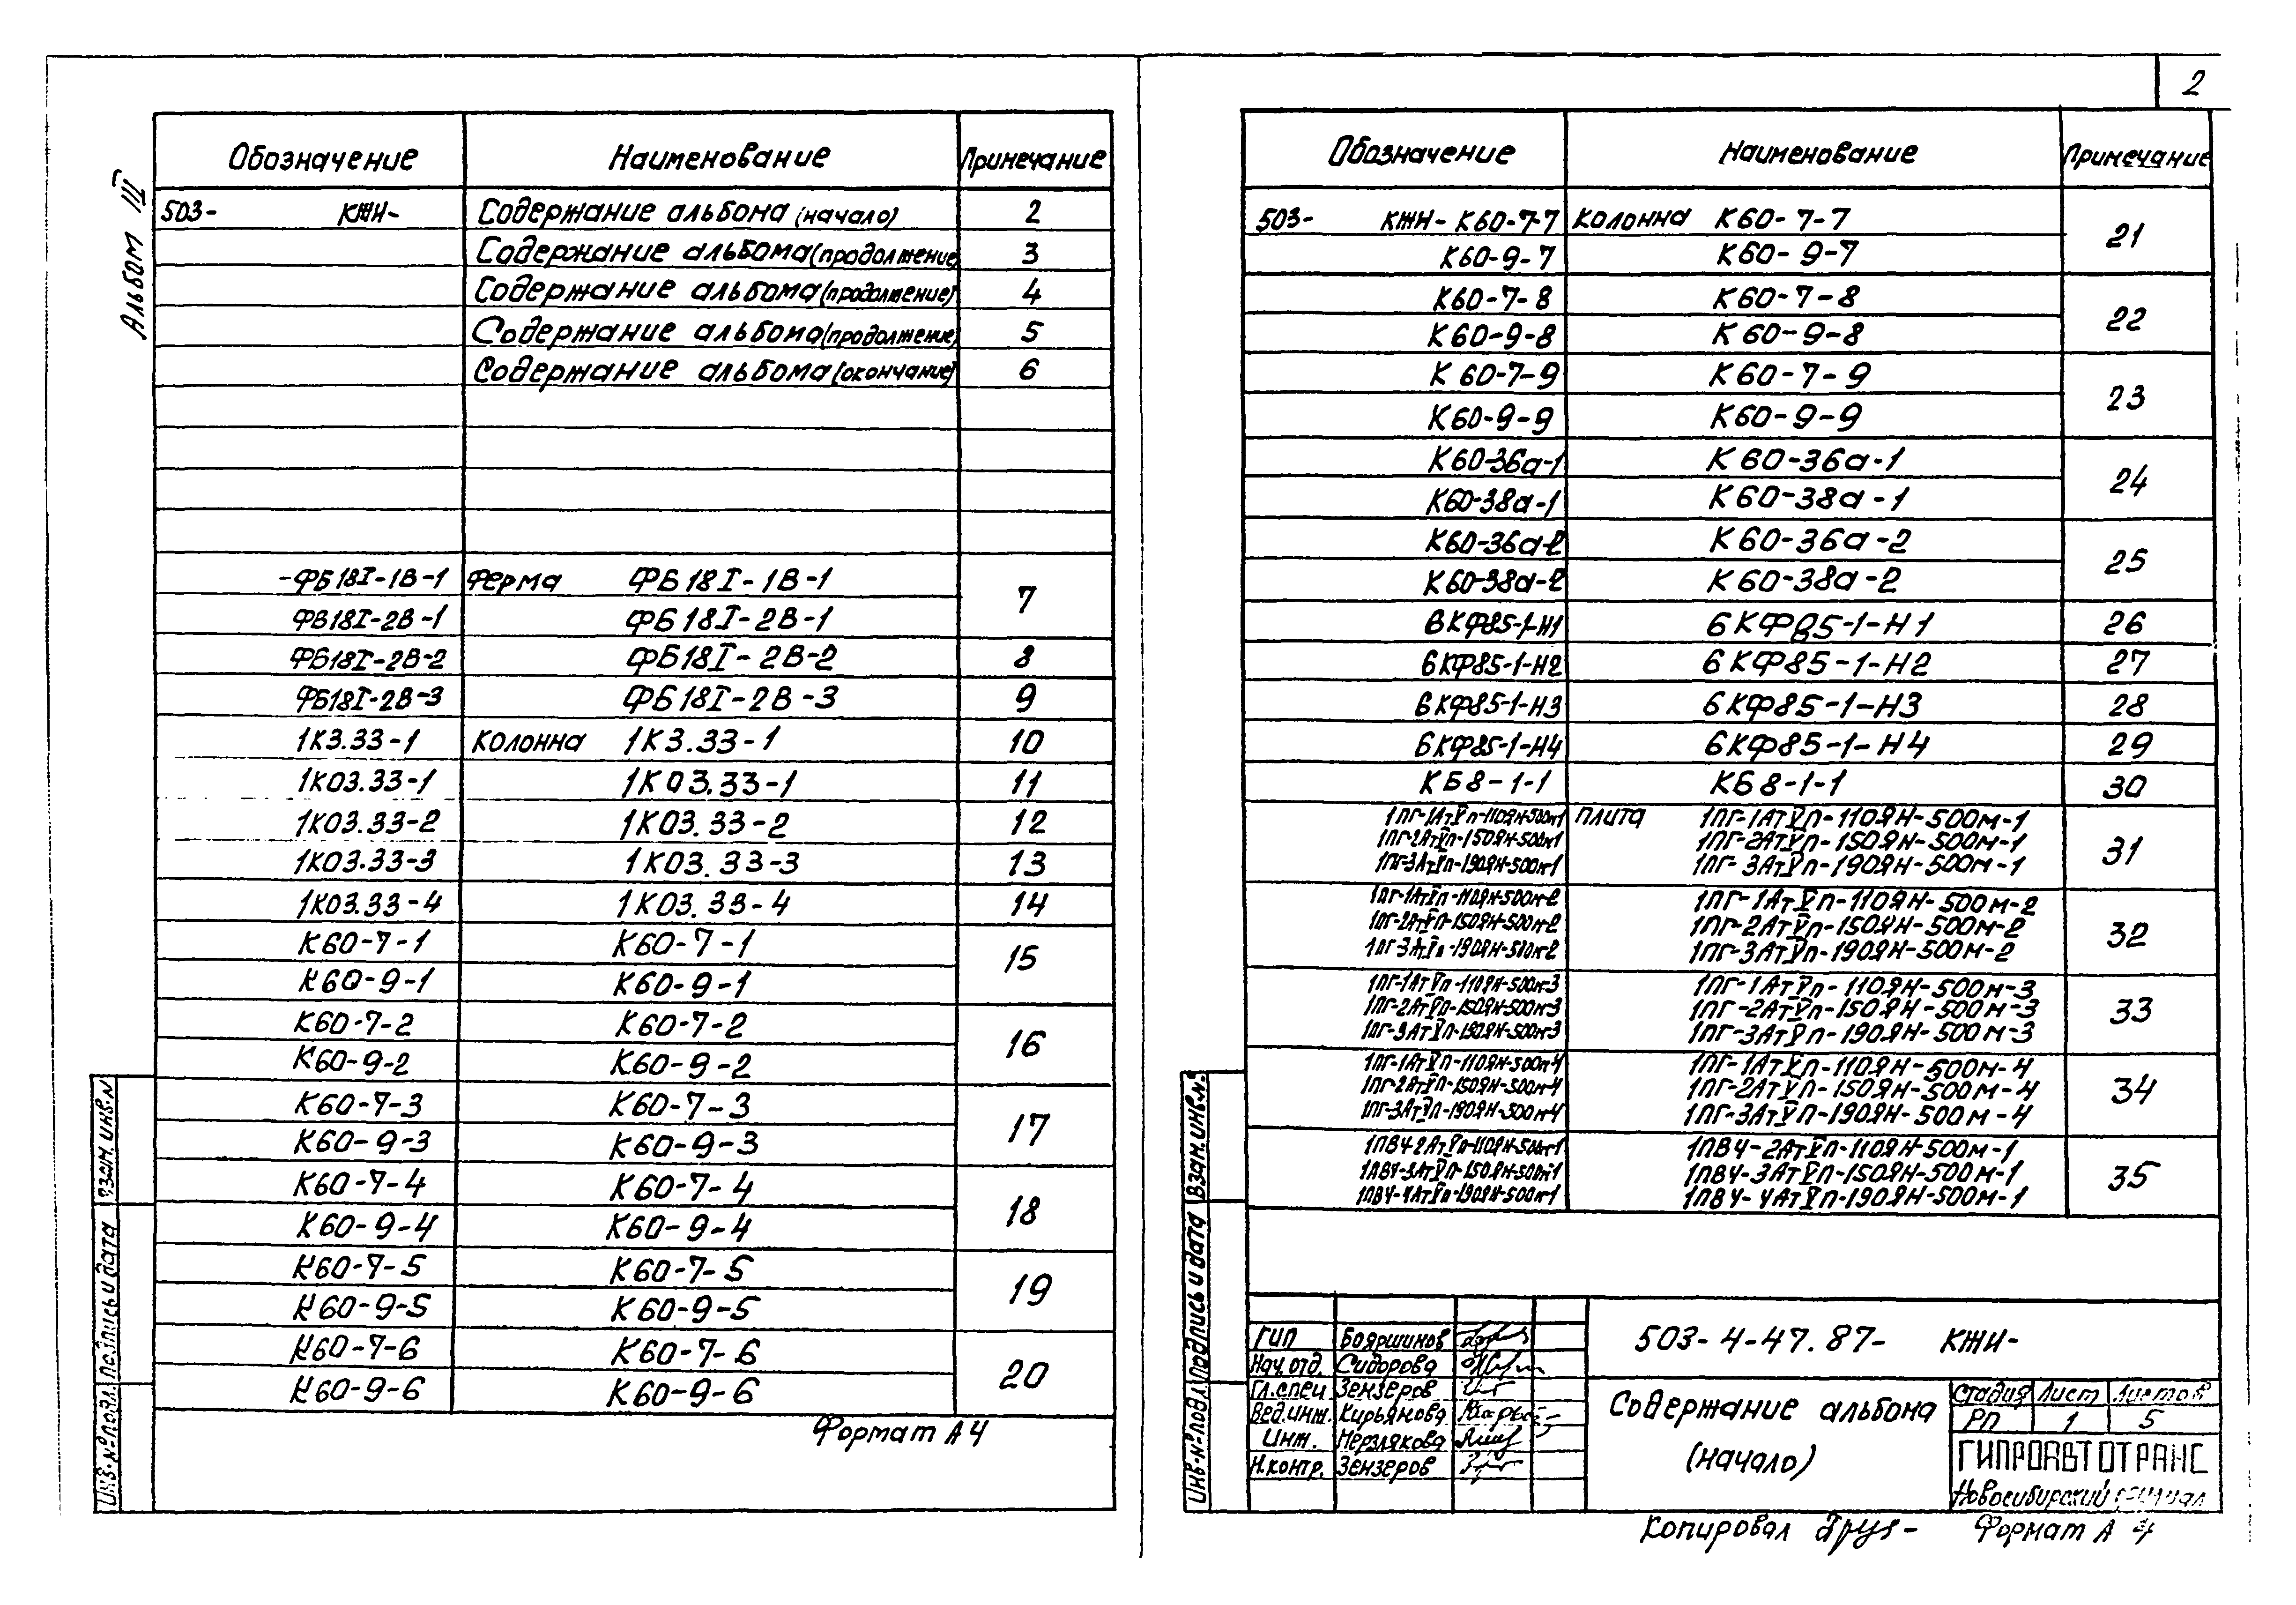 2
Альбом III
Обозначение Наименование Примечание
503- КЖИ- Содержание альбома (начало) 2
Содержание альбома (продолжение) 3
Содержание альбома (продолжение) 4
Содержание альбома (продолжение) 5
Содержание альбома (окончание) 6
-ФБ18I-1В-1 Ферма ФБ18I-1В-1 7
ФБ18I-2В-1 ФБ18I-2В-1
ФБ18I-2В-2 ФБ18I-2В-2 8
ФБ18I-2В-3 ФБ18I-2В-3 9
1К3.33-1 Колонна 1К3.33-1 10
1К03.33-1 1К03.33-1 11
1К03.33-2 1К03.33-2 12
1К03.33-3 1К03.33-3 13
1К03.33-4 1К03.33-4 14
К60-7-1 К60-7-1 15
К60-9-1 К60-9-1
К60-7-2 К60-7-2 16
К60-9-2 К60-9-2
К60-7-3 К60-7-3 17
К60-9-3 К60-9-3
К60-7-4 К60-7-4 18
К60-9-4 К60-9-4
К60-7-5 К60-7-5 19
К60-9-5 К60-9-5
К60-7-6 К60-7-6 20
К60-9-6 К60-9-6
Формат А4
Взам. инв. №
Подпись и дата
Инв. № подл.
Обозначение Наименование Примечание
503- КЖИ-К60-7-7 Колонна К60-7-7 21
К60-9-7 К60-9-7
К60-7-8 К60-7-8 22
К60-9-8 К60-9-8
К60-7-9 К60-7-9 23
К60-9-9 К60-9-9
К60-36а-1 К60-36а-1 24
К60-38а-1 К60-38а-1
К60-36а-2 К60-36а-2 25
К60-38а-2 К60-38а-2
6КФ85-1-Н1 6КФ85-1-Н1 26
6КФ85-1-Н2 6КФ85-1-Н2 27
6КФ85-1-Н3 6КФ85-1-Н3 28
6КФ85-1-Н4 6КФ85-1-Н4 29
КБ8-1-1 КБ8-1-1 30
1ПГ-1АтVп-110ЯН-500м-1 Плита 1ПГ-1АтVп-110ЯН-500м-1 31
1ПГ-2АтVп-150ЯН-500м-1 1ПГ-2АтVп-150ЯН-500м-1
1ПГ-3АтVп-190ЯН-500м-1 1ПГ-3АтVп-190ЯН-500м-1
1ПГ-1АтVп-110ЯН-500м-2 1ПГ-1АтVп-110ЯН-500м-2 32
1ПГ-2АтVп-150ЯН-500м-2 1ПГ-2АтVп-150ЯН-500м-2
1ПГ-3АтVп-190ЯН-500м-2 1ПГ-3АтVп-190ЯН-500м-2
1ПГ-1АтVп-110ЯН-500м-3 1ПГ-1АтVп-110ЯН-500м-3 33
1ПГ-2АтVп-150ЯН-500м-3 1ПГ-2АтVп-150ЯН-500м-3
1ПГ-3АтVп-190ЯН-500м-3 1ПГ-3АтVп-190ЯН-500м-3
1ПГ-1АтVп-110ЯН-500м-4 1ПГ-1АтVп-110ЯН-500м-4 34
1ПГ-2АтVп-150ЯН-500м-4 1ПГ-2АтVп-150ЯН-500м-4
1ПГ-3АтVп-190ЯН-500м-4 1ПГ-3АтVп-190ЯН-500м-4
1ПВ4-2АтVп-110ЯН-500м-1 1ПВ4-2АтVп-110ЯН-500м-1 35
1ПВ4-3АтVп-150ЯН-500м-1 1ПВ4-3АтVп-150ЯН-500м-1
1ПВ4-4АтVп-190ЯН-500м-1 1ПВ4-4АтVп-190ЯН-500м-1
Взам. инв. №
Подпись и дата
Инв. № подл.
ГИП Бояршинов
Нач. отд. Сидорова
Гл. спец. Зензеров
Вед. инж. Кирьянова
Инж. Мерзлякова
Н. контр. Зензеров
503-4-47.87- КЖИ-
Содержание альбома
(начало)
Стадия Лист Листов
РП 1 5
ГИПРОАВТОТРАНС
Новосибирский филиал
Копировал Формат А4